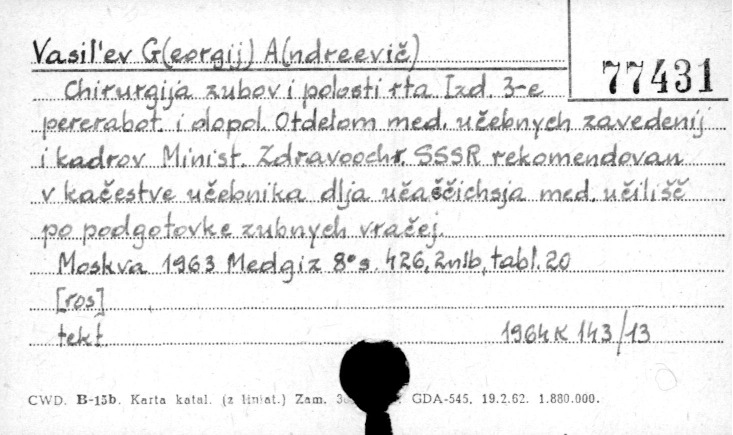 Vasil'ev G(eorgij) A(ndreevič)
77431
Chirurgija zubov i polosti rta Izd. 3-e
pererabot. i dopol. Otdelom med. učebnych zavedenij
i kadrov Minist. Zdravoochr. SSSR rekomendovan
v kačestve učebnika dlja učaščichsja med. učilišč
po podgotovke zubnych vračej.
Moskva 1963 Medgiz 8° s. 426, 2nlb, tabl. 20
[ros]
tekt
1964 K 143/13
CWD. B-15b. Karta katal. (z liniat.) Zam. GDA-545, 19.2.62. 1.880.000.